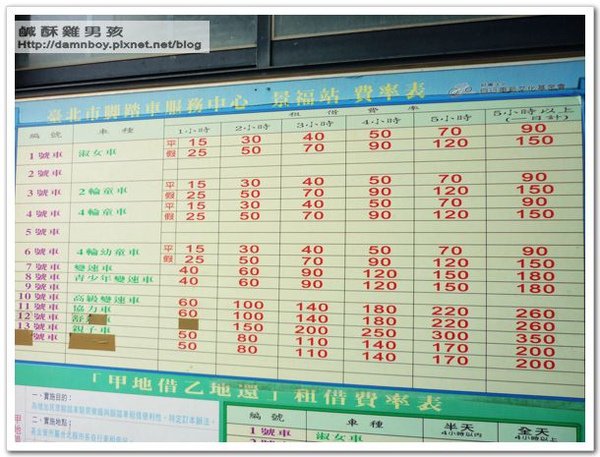 鹹酥雞男孩
Http://damnboy.pixnet.net/blog
臺北市腳踏車服務中心 景福站 費率表
編號 車種 租借費率
1小時 2小時 3小時 4小時 5小時 5小時以上(一日計)
1號車 淑女車 平 15 30 40 50 70 90
假 25 50 70 90 120 150
2號車
3號車 2輪童車 平 15 30 40 50 70 90
假 25 50 70 90 120 150
4號車 4輪童車 平 15 30 40 50 70 90
假 25 50 70 90 120 150
5號車
6號車 4輪幼童車 平 15 30 40 50 70 90
假 25 50 70 90 120 150
7號車 變速車 40 60 90 120 150 180
8號車 青少年變速車 40 60 90 120 150 180
9號車
10號車 高級變速車 60 100 140 180 220 260
11號車 協力車 100 140 180 220 260
12號車 150 200 250 300 350
13號車 親子車 50 80 110 140 170 200
號車 50 80 110 140 170 200
「甲地借乙地還」租借費率表
一、實施目的：
二、實施地點
編號 車種 半天 4小時以內 全天 4小時以上
1號車 淑女車